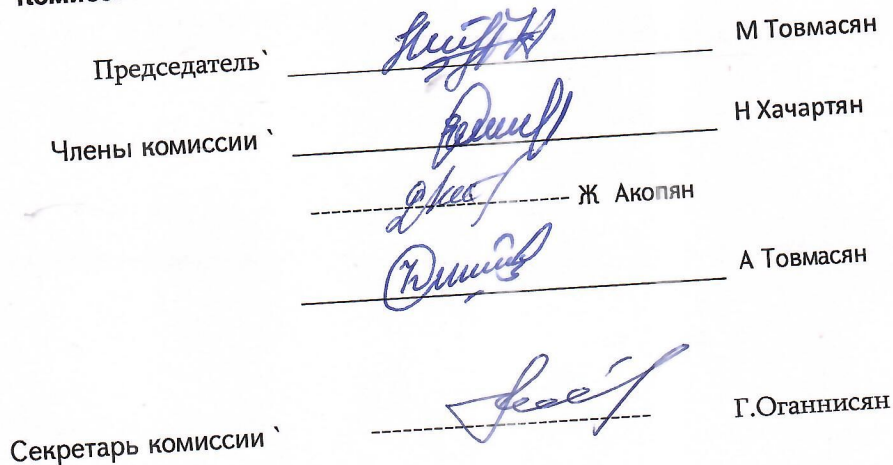 Председатель՝ М Товмасян
Члены комиссии ՝ Н Хачартян
Ж Акопян
А Товмасян
Секретарь комиссии ՝ Г.Оганнисян